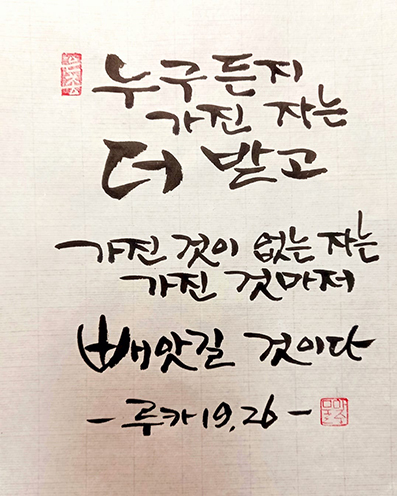 누구든지
가진 자는
더 받고
가진 것이 없는 자는
가진 것마저
빼앗길 것이다
- 루카 19,26 -